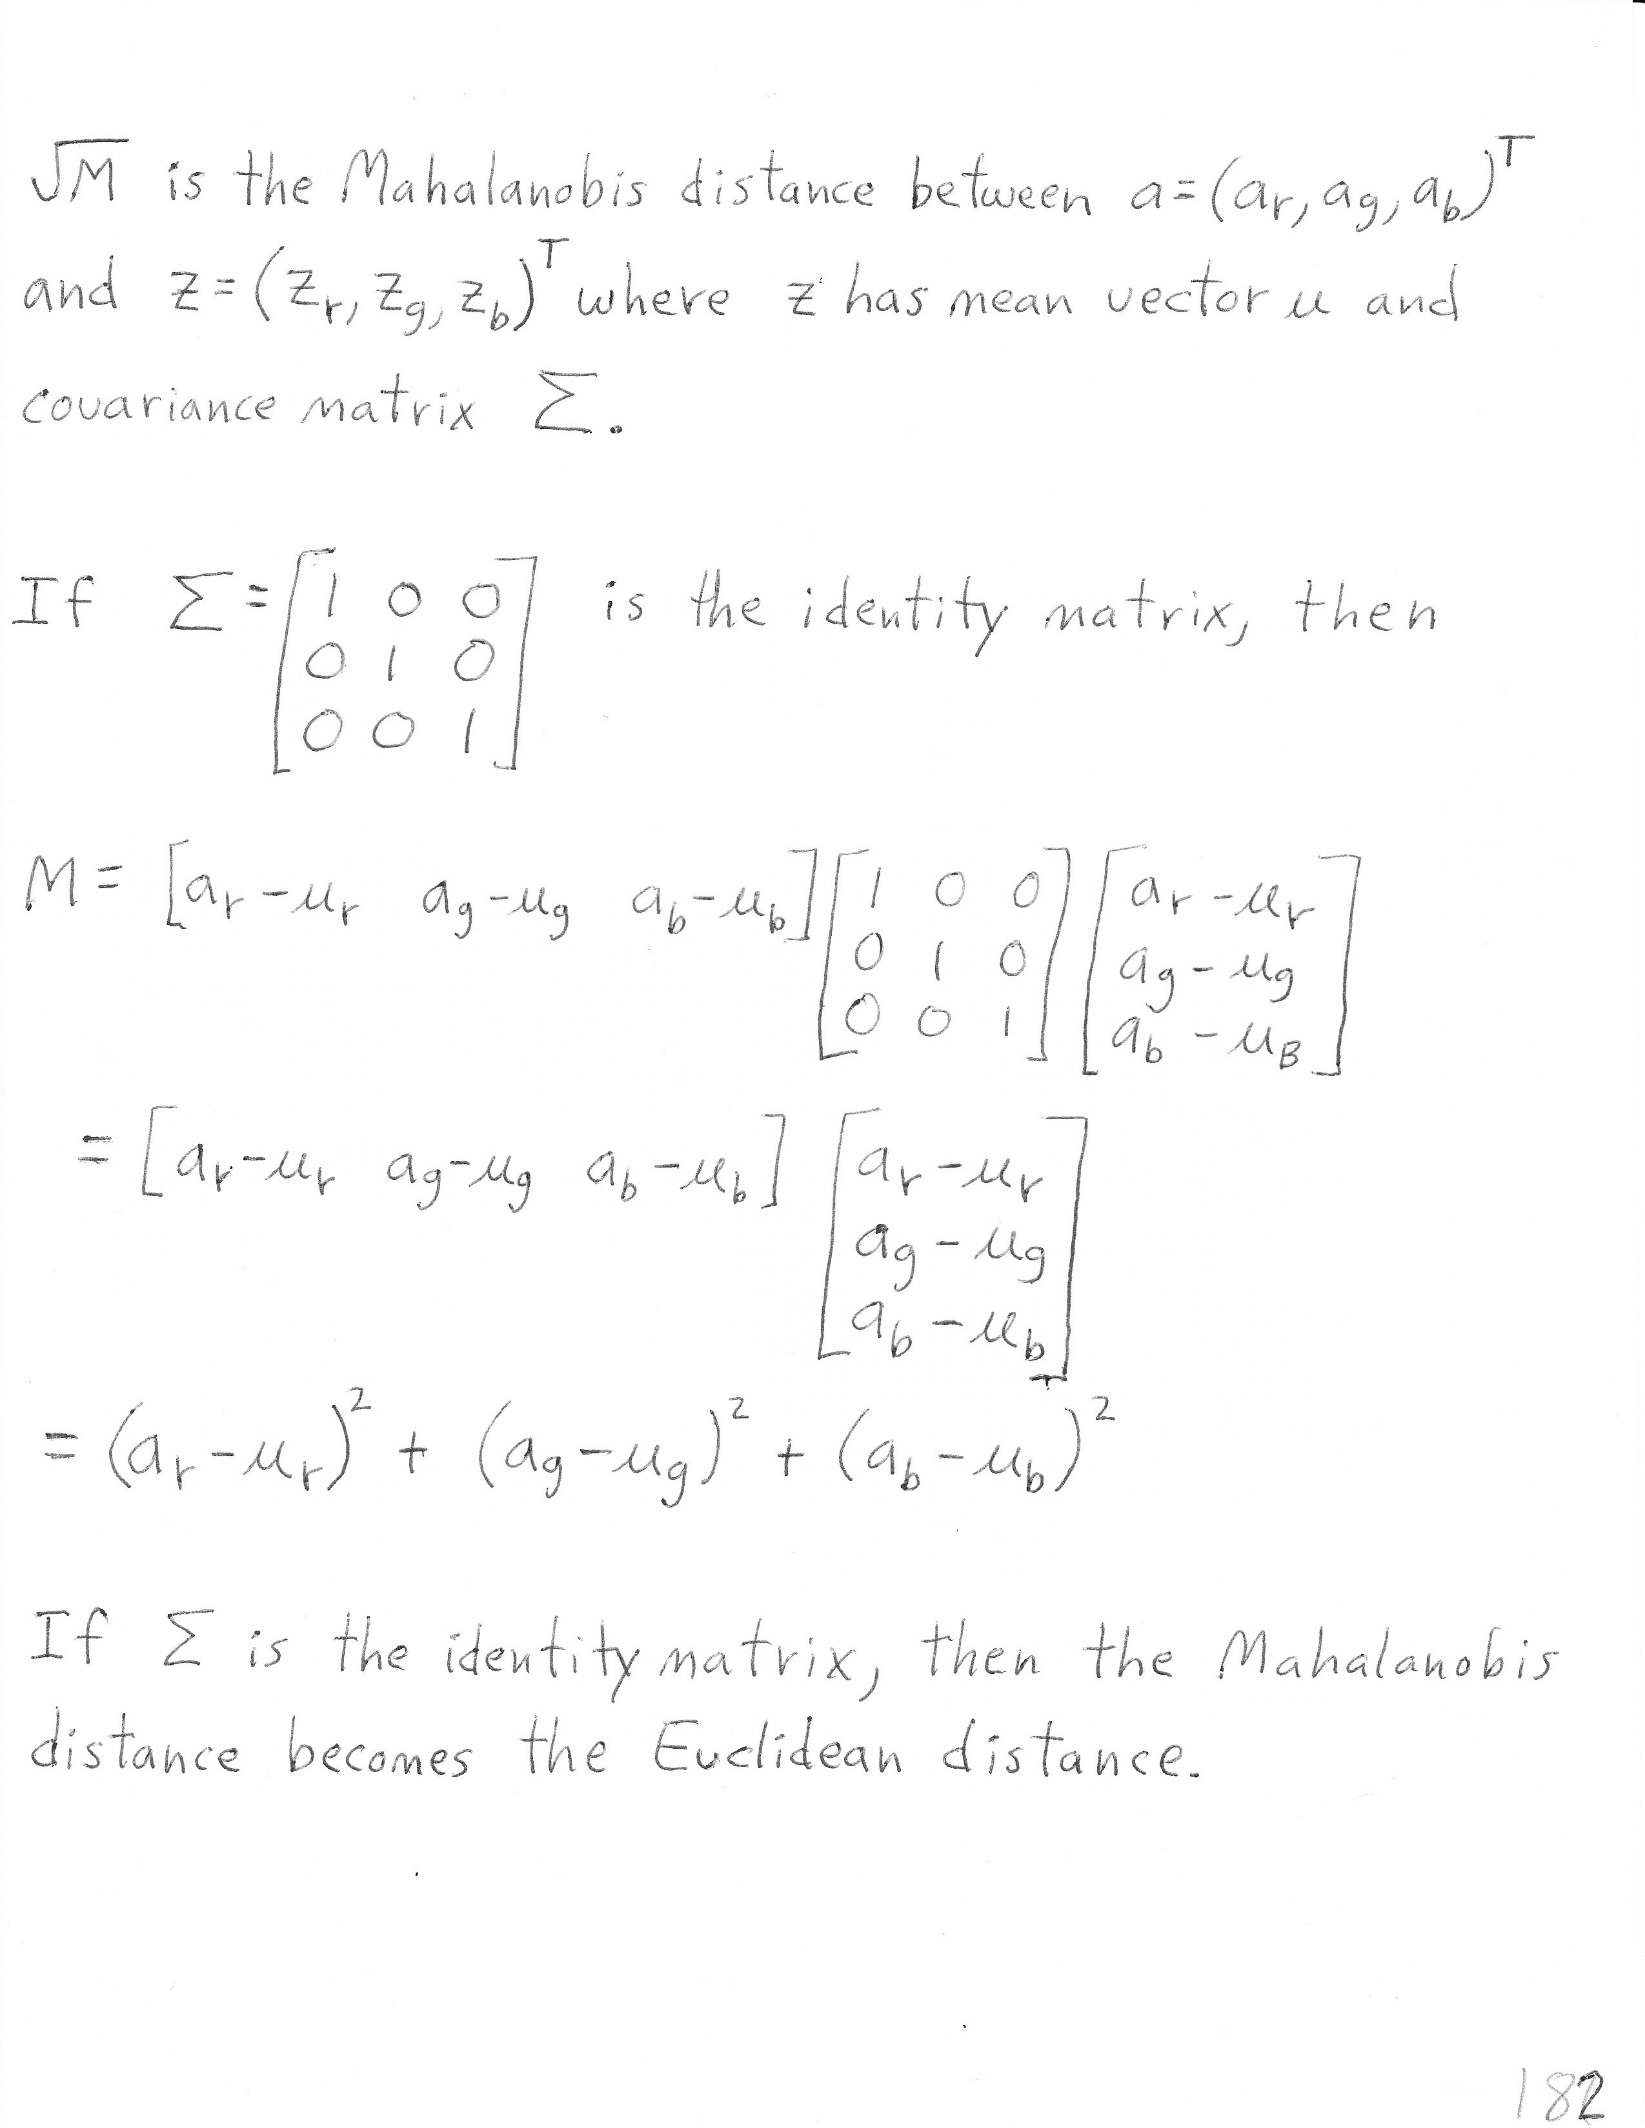 √M is the Mahalanobis distance between a=(a_r, a_g, a_b)^T
and z=(z_r, z_g, z_b)^T where z has mean vector u and
covariance matrix Σ.
If Σ=[1 0 0 is the identity matrix, then
0 1 0
0 0 1]
M= [a_r-u_r a_g-u_g a_b-u_b] [1 0 0 [a_r-u_r
0 1 0 a_g-u_g
0 0 1] a_b-u_B]
= [a_r-u_r a_g-u_g a_b-u_b] [a_r-u_r
a_g-u_g
a_b-u_b]
= (a_r-u_r)^2 + (a_g-u_g)^2 + (a_b-u_b)^2
If Σ is the identity matrix, then the Mahalanobis
distance becomes the Euclidean distance.
182